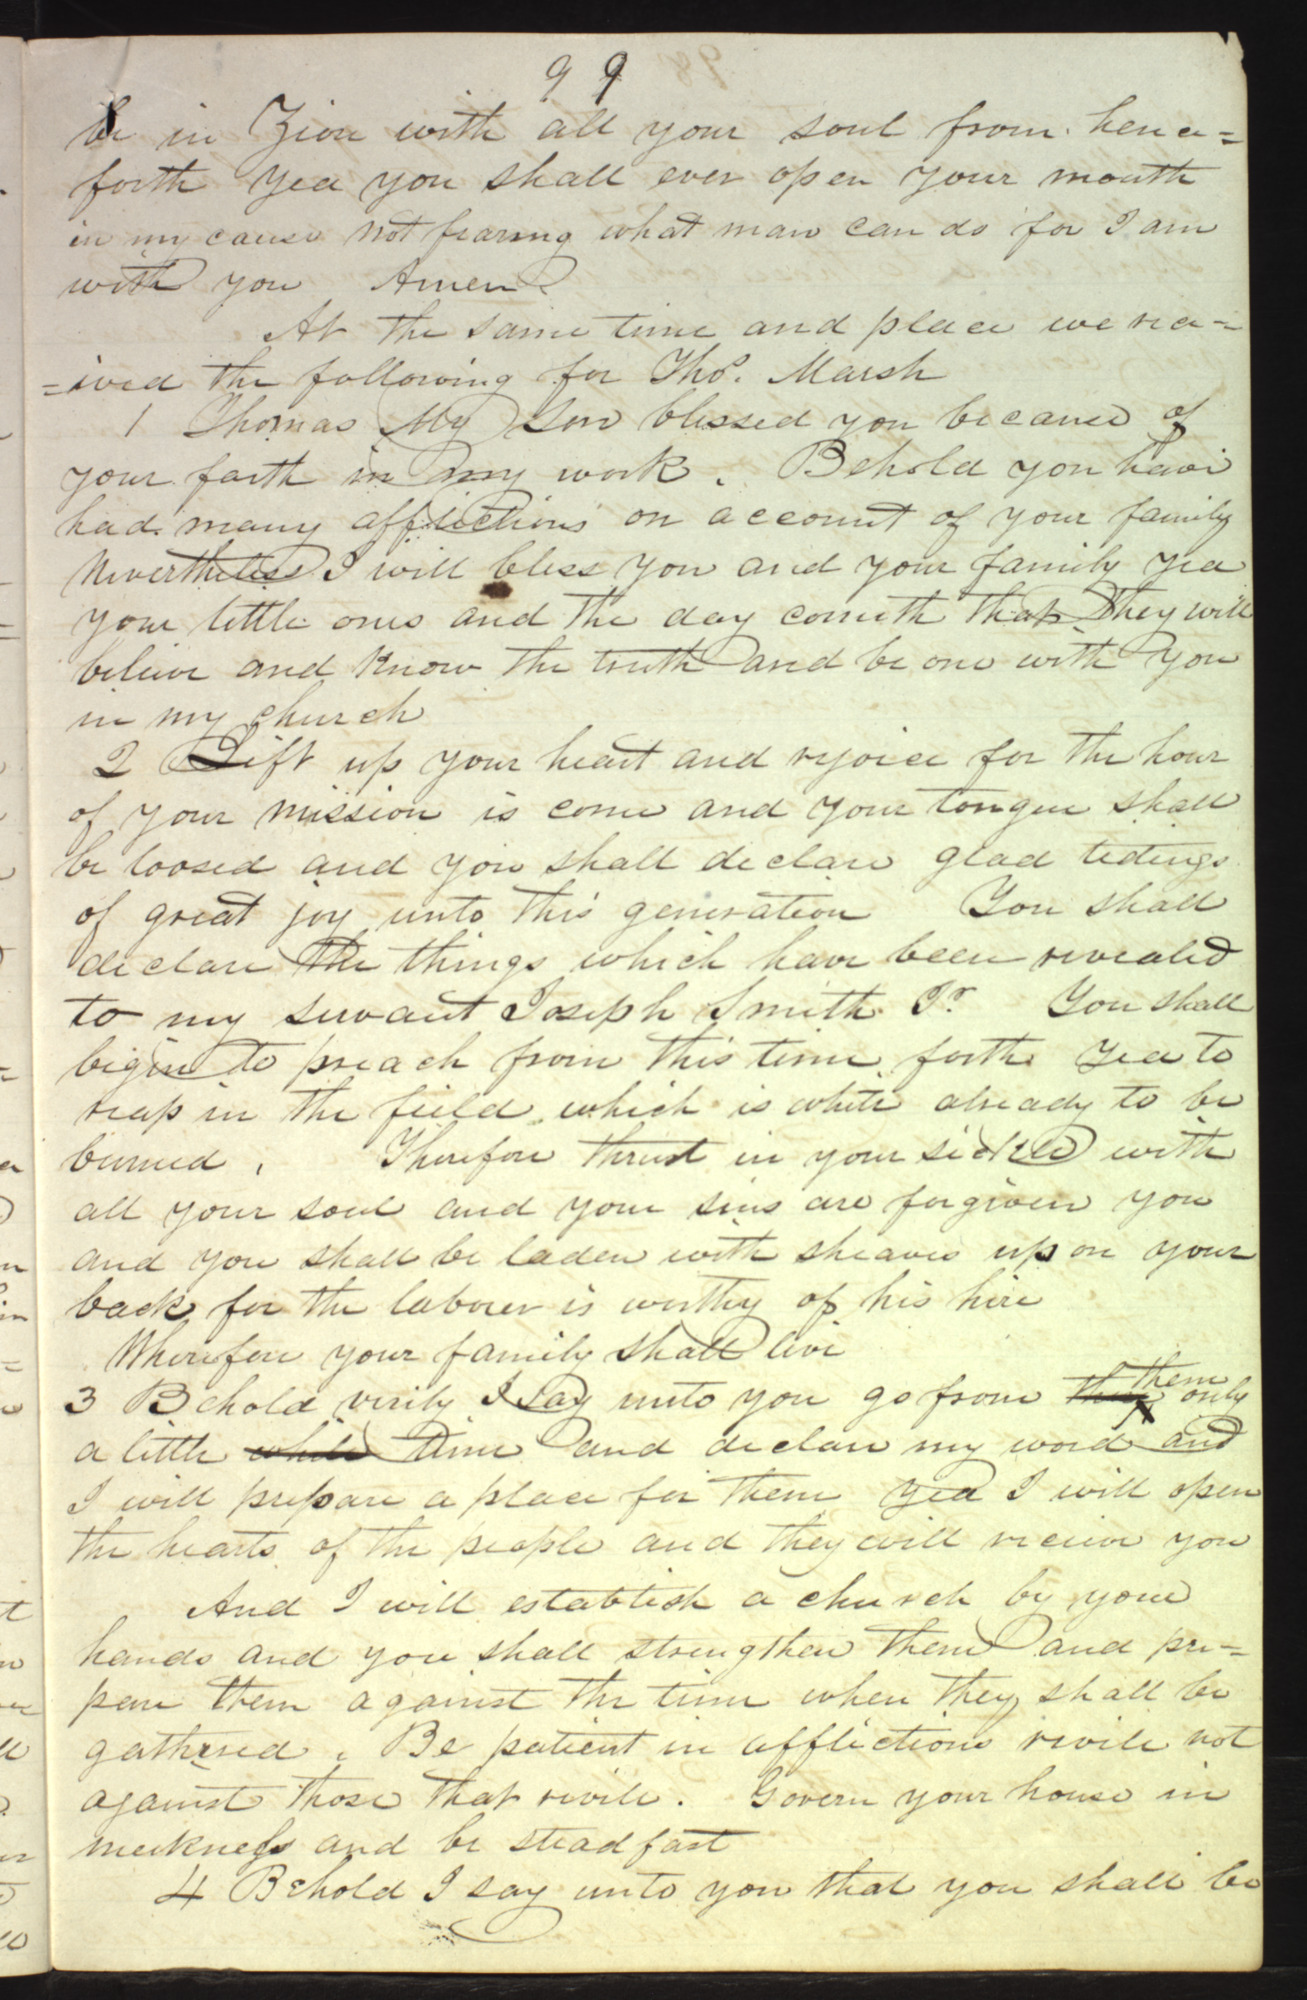 99
be in Zion with all your soul from hence=
forth Yea you shall ever open your mouth
in my cause not fearing what man can do for I am
with you Amen
At the same time and place we rec=
=ived the following for Tho⁠s. Marsh
1 Thomas My Son blessed you because of
your faith in my work. Behold you have
had many afflictions on account of your family
Nevertheless I will bless you and your family yea
your little ones and the day cometh that they will
believe and know the truth and be one with you
in my church
2 Lift up your heart and rejoice for the hour
of your mission is come and your tongue shall
be loosed and you shall declare glad tidings
of great joy unto this generation You shall
declare the things which have been revealed
to my servant Joseph Smith Jr You shall
begin to preach from this time forth yea to
reap in the field which is white already to be
burned. Therefore thrust in your sickle with
all your soul and your sins are forgiven you
and you shall be laden with sheaves upon your
back for the laborer is worthy of his hire
Wherefore your family shall live
3 Behold verily I say unto you go from them only
a little while time and declare my word and
I will prepare a place for them yea I will open
the hearts of the people and they will receive you
And I will establish a church by your
hands and you shall strengthen them and pre=
pare them against the time when they shall be
gathered. Be patient in afflictions revile not
against those that revile. Govern your house in
meekness and be steadfast
4 Behold I say unto you that you shall be